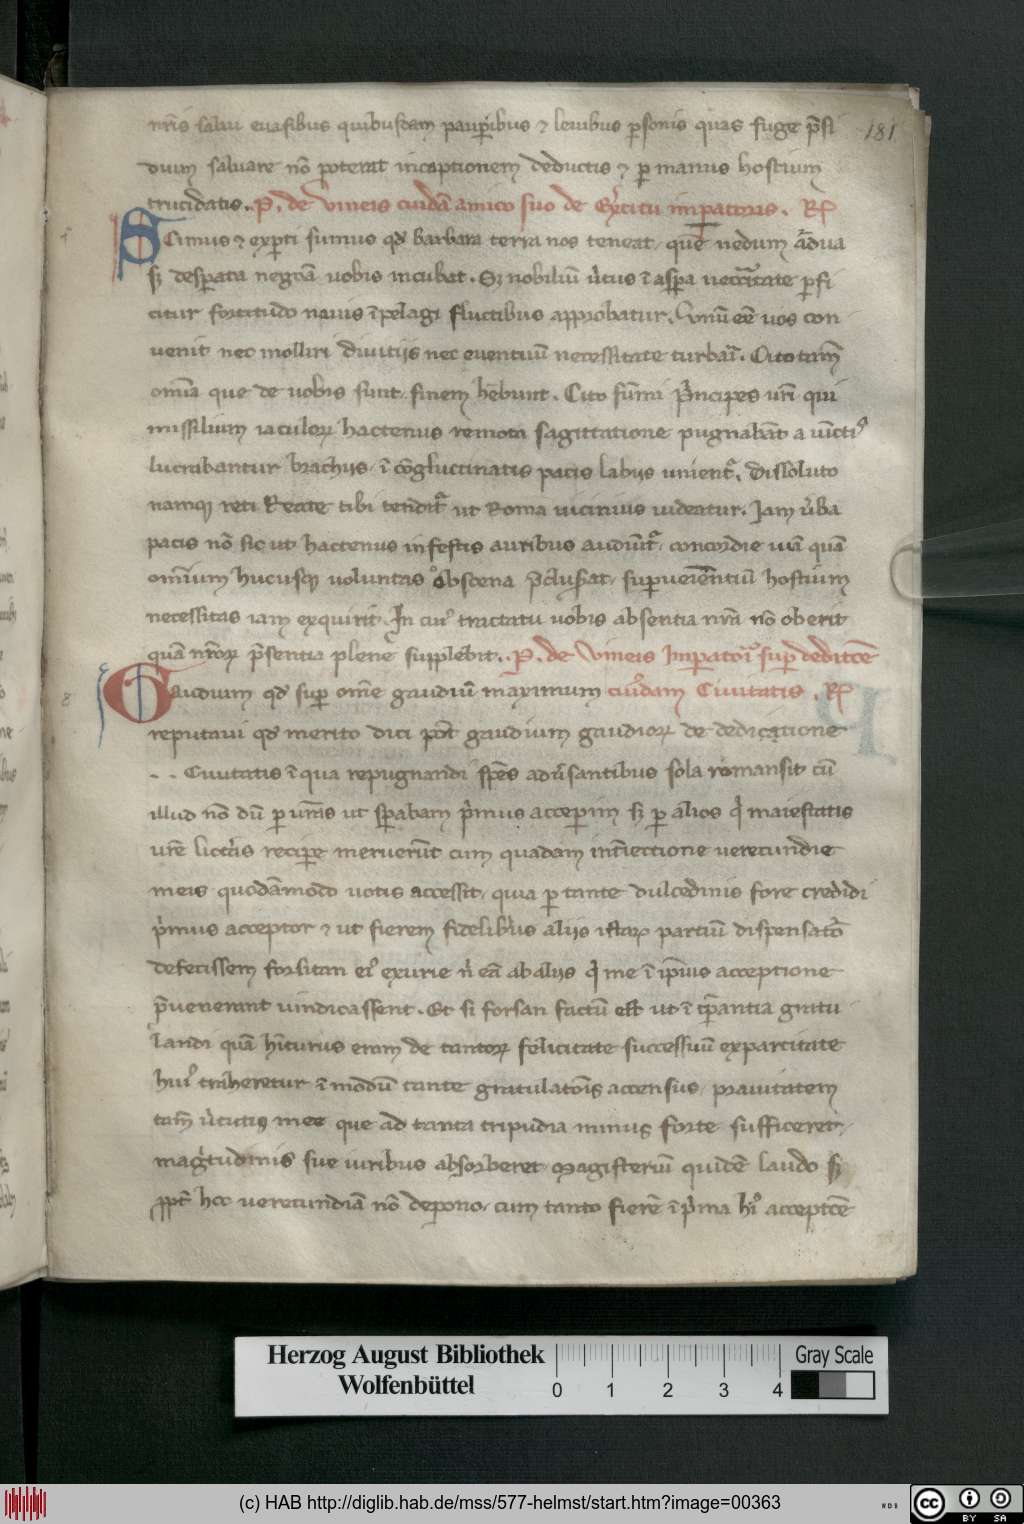 nr̄is salui euasibus quibusdam paup̄ibus ⁊ leuibus p̄sonis quas fuge p̄si 181
dium saluare nō poterat in captionem deductis ⁊ p manus hostium
trucidatis. P. de Vineis cuidā amico suo de Ex̄citu impatoris. R̄
Scimus ⁊ exp̄ti sumus qd̄ barbara terra nos teneat, que nedum ardua
sꝫ desp̄ata negoc̄ia uobis incubat. Sꝫ nobiliū u̓tus ī asp̄a necc̄itate p̄fi
citur fortitudo nauis ī pelagi fluctibus approbatur. Vnū eē uos con
uenit nec molliri diuitijs nec euentuū necessitate turbari. Cito tam̄
om̄ia que de uobis sunt, finem hēbunt. Cito sūmi p̄ncipes ur̄i qui
missilium iaculoꝝ hactenus remota sagittatione pugnabāt a uīctis
lucrabantur brachijs, ī cōglutinatis pacis labijs unient̄. Dissoluto
namqꝫ reti Reate tibi tendit̄ ut Roma uicinius uideatur. Jam u̓ba
pacis nō sic ut hactenus infestis auribus audiūt̄, concordie uiā quā
omnium hucusqꝫ voluntas obscena p̄cluserat, sup̄uenientiū hostium
necessitas iam exquirit. In cui᷒ tractatu uobis absentia nr̄a nō oberit
quā nr̄oꝝ p̄sentia plene supplebit. P. de Vineis Imperatori sup deditōe
Gaudium qd̄ sup om̄e gaudiū maximum cuiusdam Ciuitatis. R̄
reputaui qd̄ merito dici pōt gaudium gaudioꝝ de dedicatione
. . Ciuitatis ī qua repugnandi sp̄es adu̓santibus sola romansit cū
illud nō dū p ur̄as ut sp̄abam p̄mus acceperim sꝫ p alios q̓ maiestatis
ur̄e litt̄is recip̄e meruerūt cum quadam int̄iectione uerecundie
meis quodāmodo uotis accessit, quia p tante dulcedinis fore credidi
p̄mus acceptor ⁊ ut fierem fidelibus aliis istaꝝ partiū dispensator
defecissem forsitan ei᷒ exurie n̓ eā ab alijs q̓ me ī ip̄ius acceptione
p̄uenerant uindicassent. Et si forsan factū est ut ī tp̄antia gratu
landi quā hīturus eram de tantoꝝ felicitate successuū ex parcitate
hui᷒ traheretur ī modū tante gratulatōis accensus, prauitatem
tam̄ u̓tutis mee que ad tanta tripudia minus forte sufficeret,
mag̓tudinis sue iuribus absorberet. Magisteriū quidē laudo sꝫ
ppt̄ hoc uerecundiā nō depono, cum tanto fierē ī p̄ma hi᷒ acceptōe
Herzog August Bibliothek
Wolfenbüttel
0 1 2 3 4
Gray Scale
(c) HAB http://diglib.hab.de/mss/577-helmst/start.htm?image=00363
WDB
cc BY SA